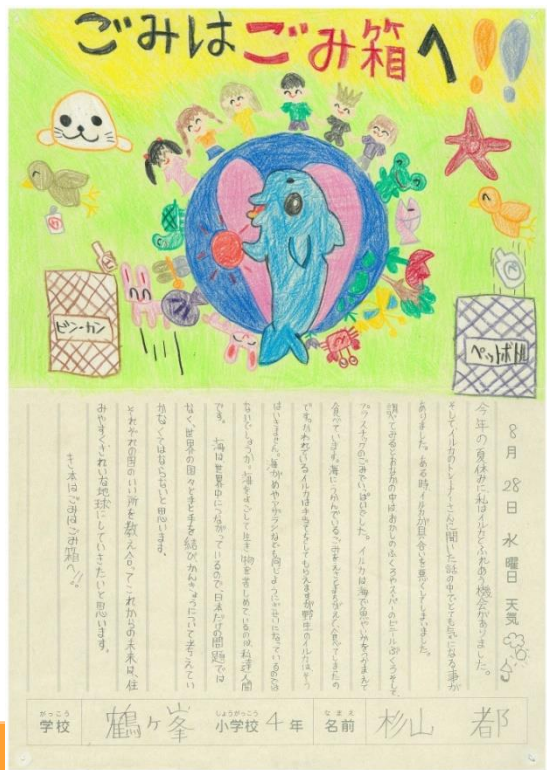 ごみはごみ箱へ!!
ビン・カン
ペットボトル
8月28日 水曜日 天気
今年の夏休みに私はイルカとふれあう機会がありました。
そしてイルカのトレーナーさんに聞いた話の中でとても気になる事が
ありました。ある時イルカが具合いを悪くしてしまいました。
調べてみるとおなかの中はおかしのふくろやスーパーのビニールぶくろそして
プラスチックのごみでいっぱいでした。イルカは海で魚やいかをつかまえて
食べています。海にうかんでいるごみをえさとまちがえて食べてしまったの
です。かわれているイルカは手当てをしてもらえますが野生のイルカはそう
はいきません。海がめやアザラシなども同じようにぎせいになっているのでは
ないでしょうか。海をよごして生き物を苦しめているのは私達人間
です。海は世界中につながっているので日本だけの問題では
なく、世界の国々と手と手を結びかんきょうについて考えてい
かなくてはならないと思います。
それぞれの国のいい所を教え合ってこれからの未来は、住
みやすくきれいな地球にしていきたいと思います。
き本はごみはごみ箱へ!!
がっこう しょうがっこう なまえ
学校 鶴ヶ峯 小学校 4年 名前 杉山 都